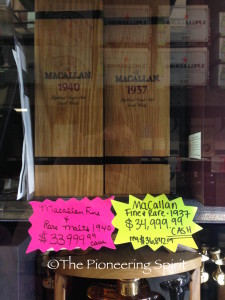 MACALLAN
1940
MACALLAN
1937
Macallan Fine
&
Rare Malts 1940
$33999.99
CASH
MaCallan
Fine & Rare 1937
$34,999.99
CASH
©The Pioneering Spirit